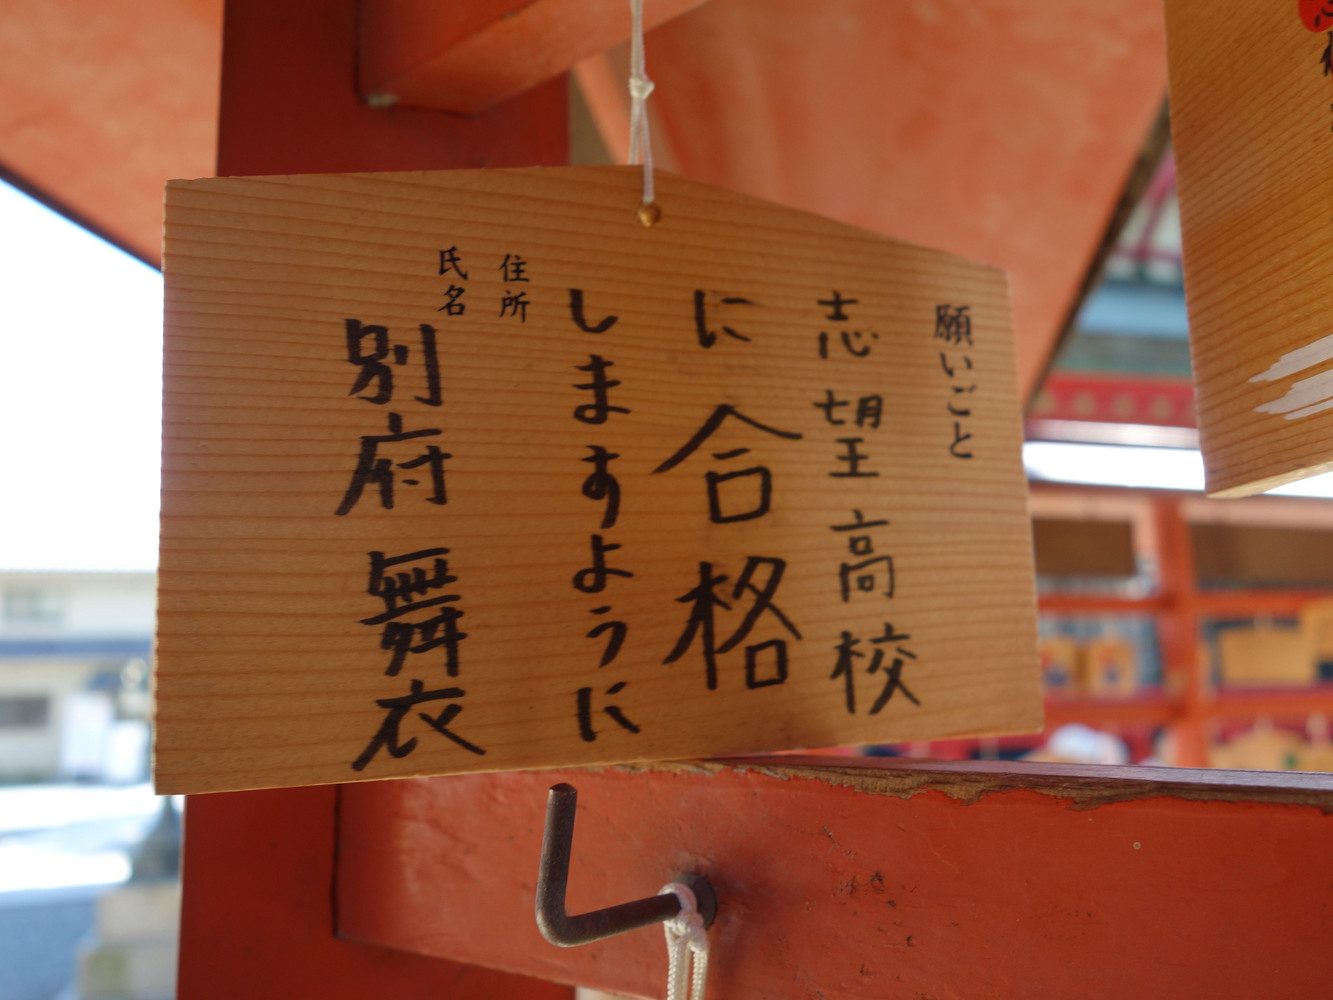 願いごと
志望高校
に合格
しますように
住所
氏名
別府舞衣